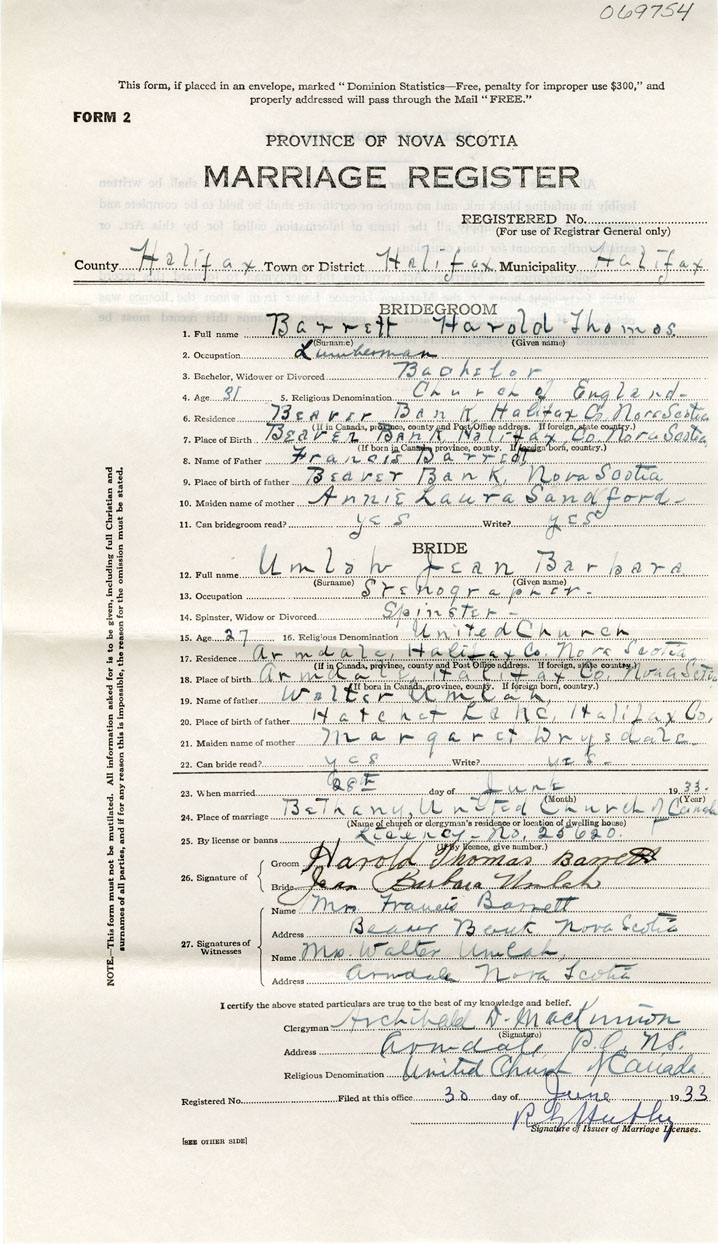 069754
This form, if placed in an envelope, marked "Dominion Statistics—Free, penalty for improper use $300," and
properly addressed will pass through the Mail "FREE."
FORM 2
PROVINCE OF NOVA SCOTIA
MARRIAGE REGISTER
REGISTERED No.
(For use of Registrar General only)
County Halifax Town or District Halifax Municipality Halifax
BRIDEGROOM
1. Full name Barrett Harold Thomas
(Surname) (Given name)
2. Occupation Lumberman
3. Bachelor, Widower or Divorced Bachelor
4. Age 31 5. Religious Denomination Church of England-
6. Residence Beaver Bank, Halifax Co, Nova Scotia
(If in Canada, province, county and Post Office address. If foreign, state country.)
7. Place of Birth Beaver Bank, Halifax Co. Nova Scotia
(If born in Canada, province, county. If foreign born, country.)
8. Name of Father Francis Barrett
9. Place of birth of father Beaver Bank, Nova Scotia
10. Maiden name of mother Annie Laura Sandford-
11. Can bridegroom read? yes Write? yes
BRIDE
12. Full name Umlah Jean Barbara
(Surname) (Given name)
13. Occupation Stenographer-
14. Spinster, Widow or Divorced Spinster-
15. Age 27 16. Religious Denomination United Church
17. Residence Armdale, Halifax Co, Nova Scotia
(If in Canada, province, county and Post Office address. If foreign, state country.)
18. Place of birth Armdale, Halifax Co. Nova Scotia
(If born in Canada, province, county. If foreign born, country.)
19. Name of father Walter Umlah,
20. Place of birth of father Hatchet Lake, Halifax Co,
21. Maiden name of mother Margaret Drysdale-
22. Can bride read? yes Write? yes-
23. When married 28th day of June 1933.
(Month) (Year)
24. Place of marriage Bethany, United Church of Canada
(Name of church or clergyman's residence or location of dwelling house)
25. By license or banns No. 25620.
(If by licence, give number.)
26. Signature of
Groom Harold Thomas Barrett
Bride Jean Barbara Umlah
27. Signatures of Witnesses
Name Mrs Francis Barrett
Address Beaver Bank Nova Scotia
Name Mrs. Walter Umlah,
Address Armdale Nova Scotia
I certify the above stated particulars are true to the best of my knowledge and belief.
Clergyman Archibald D. MacKinnon
(Signature)
Address Armdale P.O. N.S.
Religious Denomination United Church of Canada.
Registered No. Filed at this office 30 day of June 1933
Signature of Issuer of Marriage Licenses.
[SEE OTHER SIDE]
NOTE.—This form must not be mutilated. All information asked for is to be given, including full Christian and
surnames of all parties, and if for any reason this is impossible, the reason for the omission must be stated.